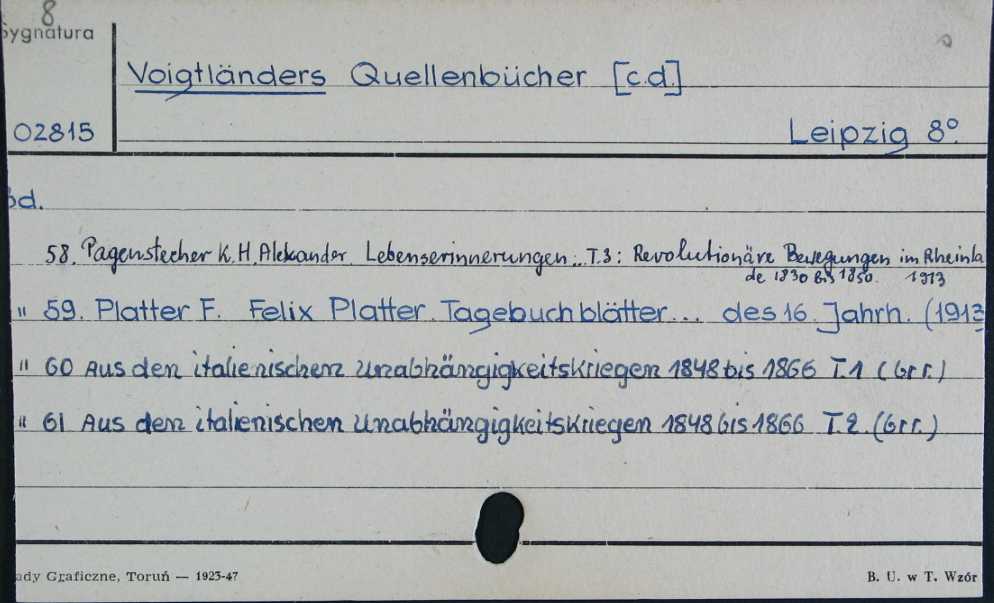 8
Sygnatura
Voigtländers Quellenbücher [c.d.]
02815
Leipzig 8°.
Bd.
58. Pagenstecher K.H. Alexander Lebenserinnerungen... T.3: Revolutionäre Bewegungen im Rheinla
de 1830 bis 1850. 1913
" 59. Platter F. Felix Platter. Tagebuchblätter... des 16 Jahrh. (1913
" 60 Aus den italienischen Unabhängigkeitskriegen 1848 bis 1866 T.1 (b.r.)
" 61 Aus den italienischen Unabhängigkeitskriegen 1848 bis 1866 T.2. (b.r.)
ady Graficzne, Toruń — 1923-47
B. U. w T. Wzór